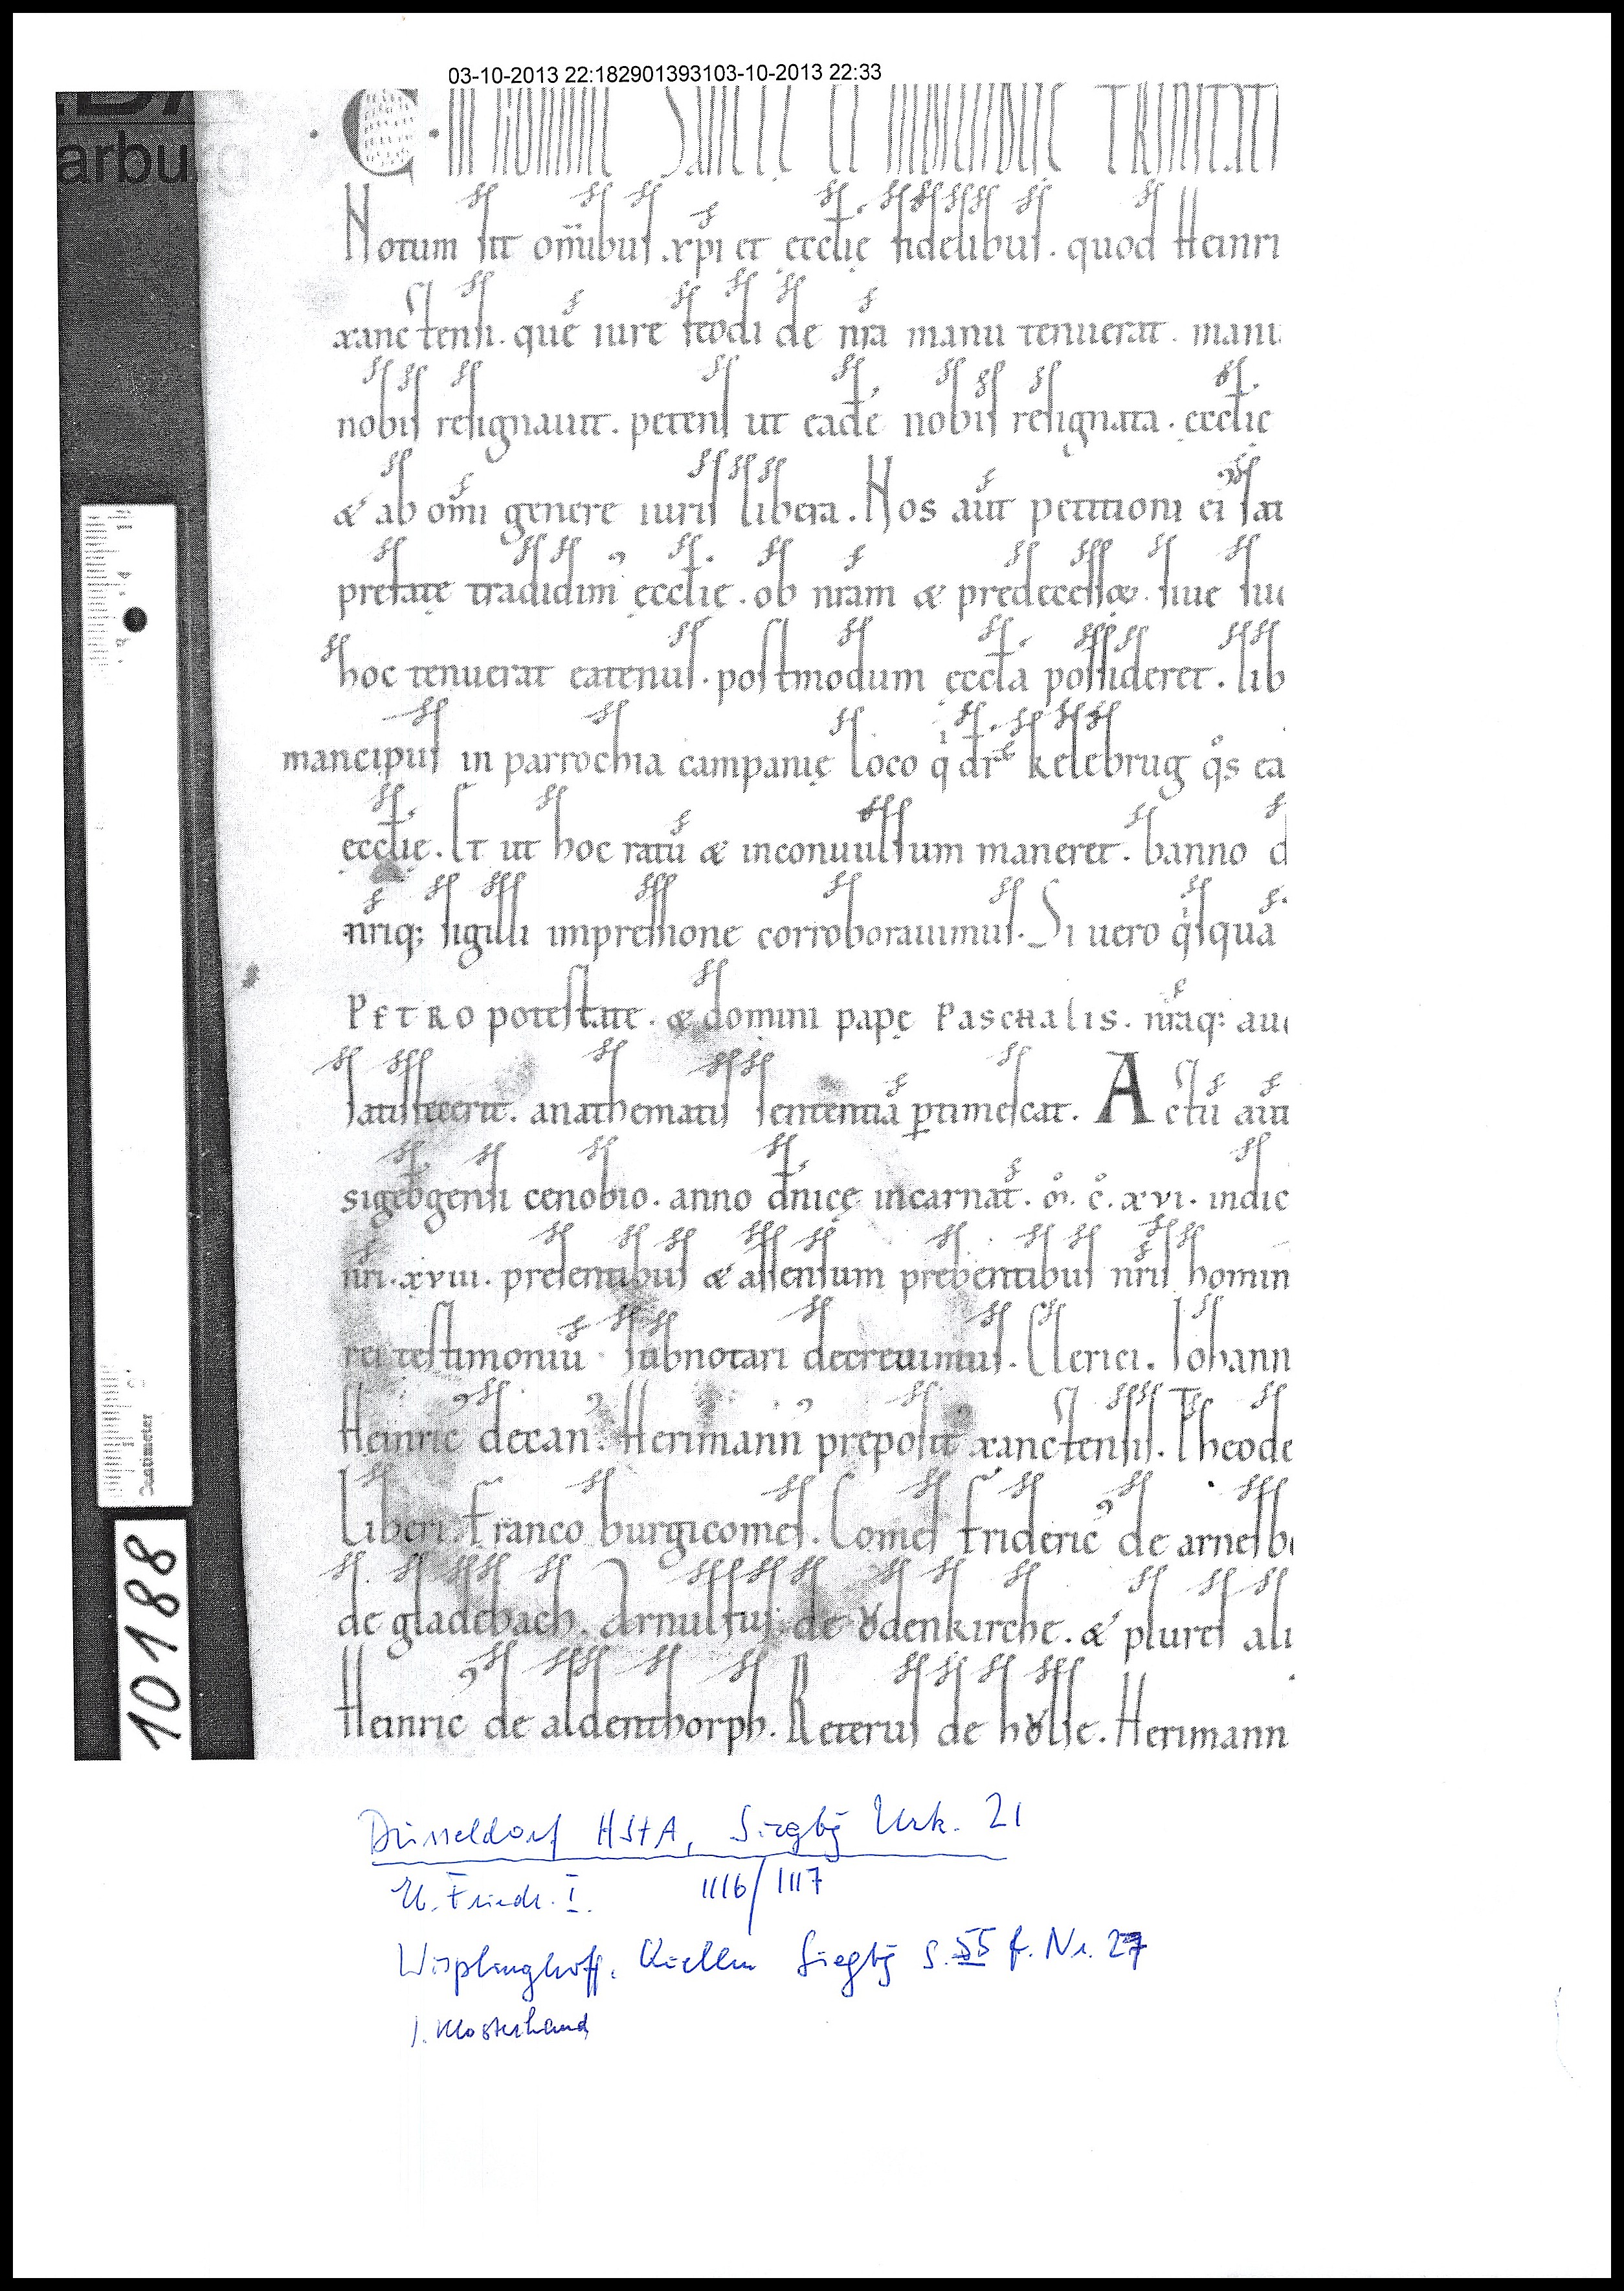 03-10-2013 22:182901393103-10-2013 22:33
arburg
C · IN NOMINE SANCTĘ ET INDIVIDUE TRINITATI
Notum sit om̅ibus .xp̅i et ęccl̅ię fidelibus. quod Heinri
xanctensi. quē iure feodi de nr̅a manu tenuerat. manu
nobis resignauit. petens ut eadē nobis resignata. ęccl̅ię
& ab om̅i genere iuris libera. Nos aut̅ petitioni ei᾽ sati
prefatę tradidim᾽ ęccl̅ię. ob nr̅am & predecessoꝝ. siue suc
hoc tenuerat eatenus. postmodum ęccl̅a possideret. lib
mancipiis in parrochia campanię loco qͥ dr̅ kelebrug qͦs ea
ęccl̅ię. Et ut hoc ratū & inconuulsum maneret. banno d
nr̅iq; sigilli impressione corroborauimus. Si uero qͥsquā
PETRO potestate. & domini papę PASCHALIS. nr̅aq; auc
satisfecerit. anathematis sententiā ꝑtimescat. Actū aut̅
sigeb̅gensi cenobio. anno dn̅icę incarnat̅. ͦm. ͦc. xvi. indic
nr̅i. xviii. presentibus & assensum prebentibus nr̅is homin
rei testimoniū subnotari decreuimus. Clerici. Iohann
Heinric᾽ decan᾽. Herimann᾽ preposit᾽ xanctensis. Theode
Liberi. Franco burgicomes. Comes frideric᾽ de arnesb
de gladebach. Arnulfus de ȣdenkirche. & plures ali
Heinric᾽ de aldenthorph. Reterus de hȣlse. Herimann
Centimeter
10188
Düsseldorf HStA, Siegbg Urk. 21
Eb. Friedr. I. 1116/1117
Wisplinghoff, Quellen Siegbg S. 55 f. Nr. 27
1. Klosterhand